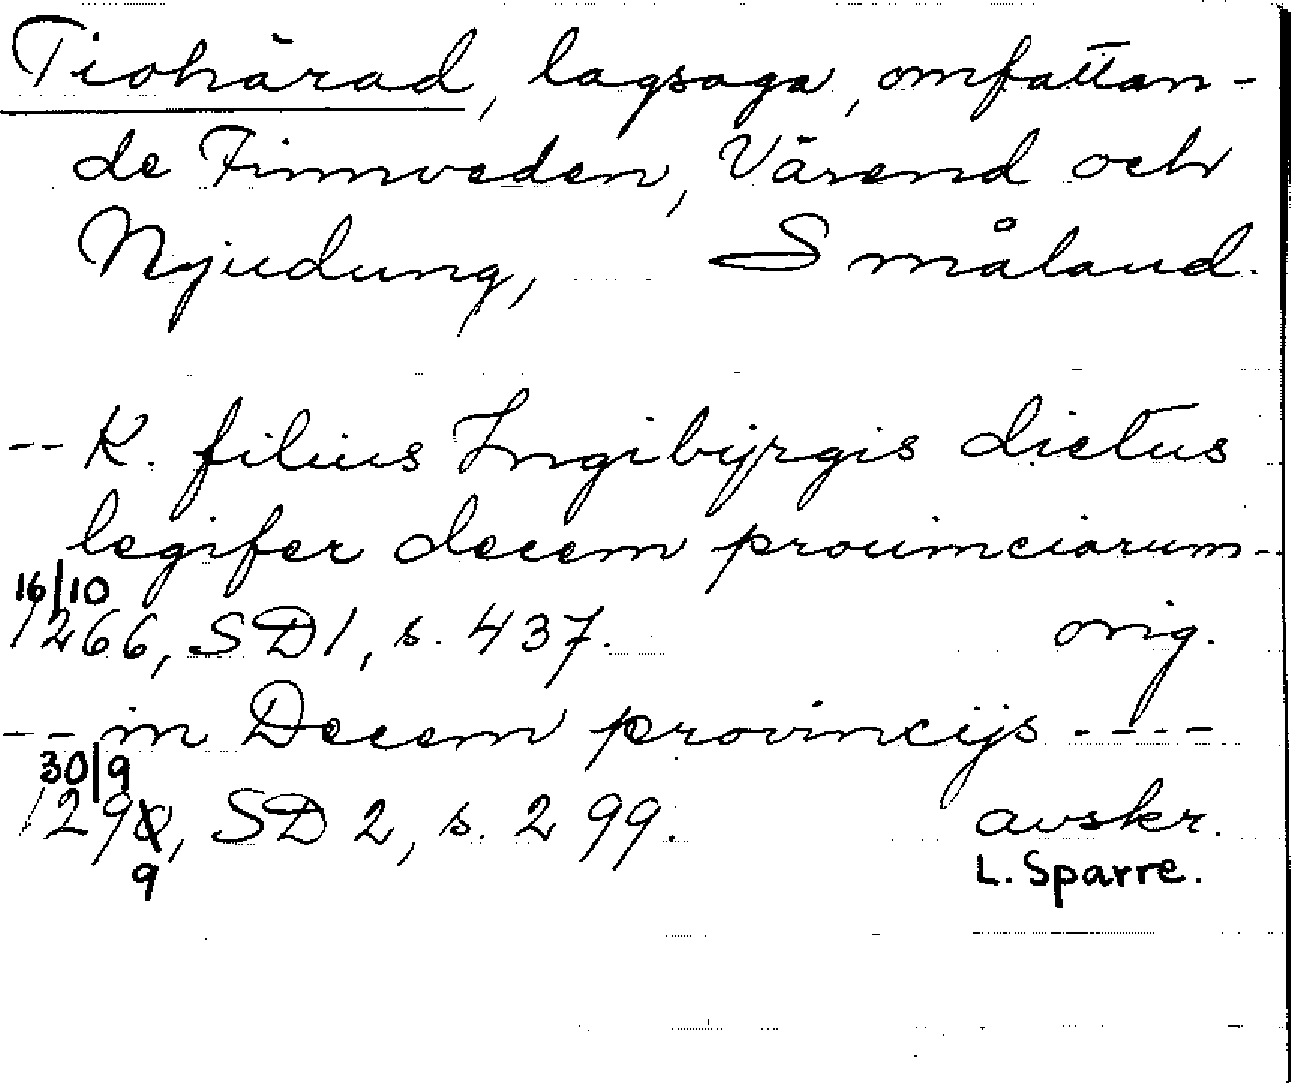 Tiohärad, lagsaga, omfattan-
de Finnveden, Värend och
Njudung, Småland.
-- K. filius Ingibyrgis dictus
legifer decem prouinciarum--
16/10
1266, SD 1, s. 437. orig.
-- in Decem provincijs ----
30/9
1290, SD 2, s. 299. avskr.
9 L. Sparre.